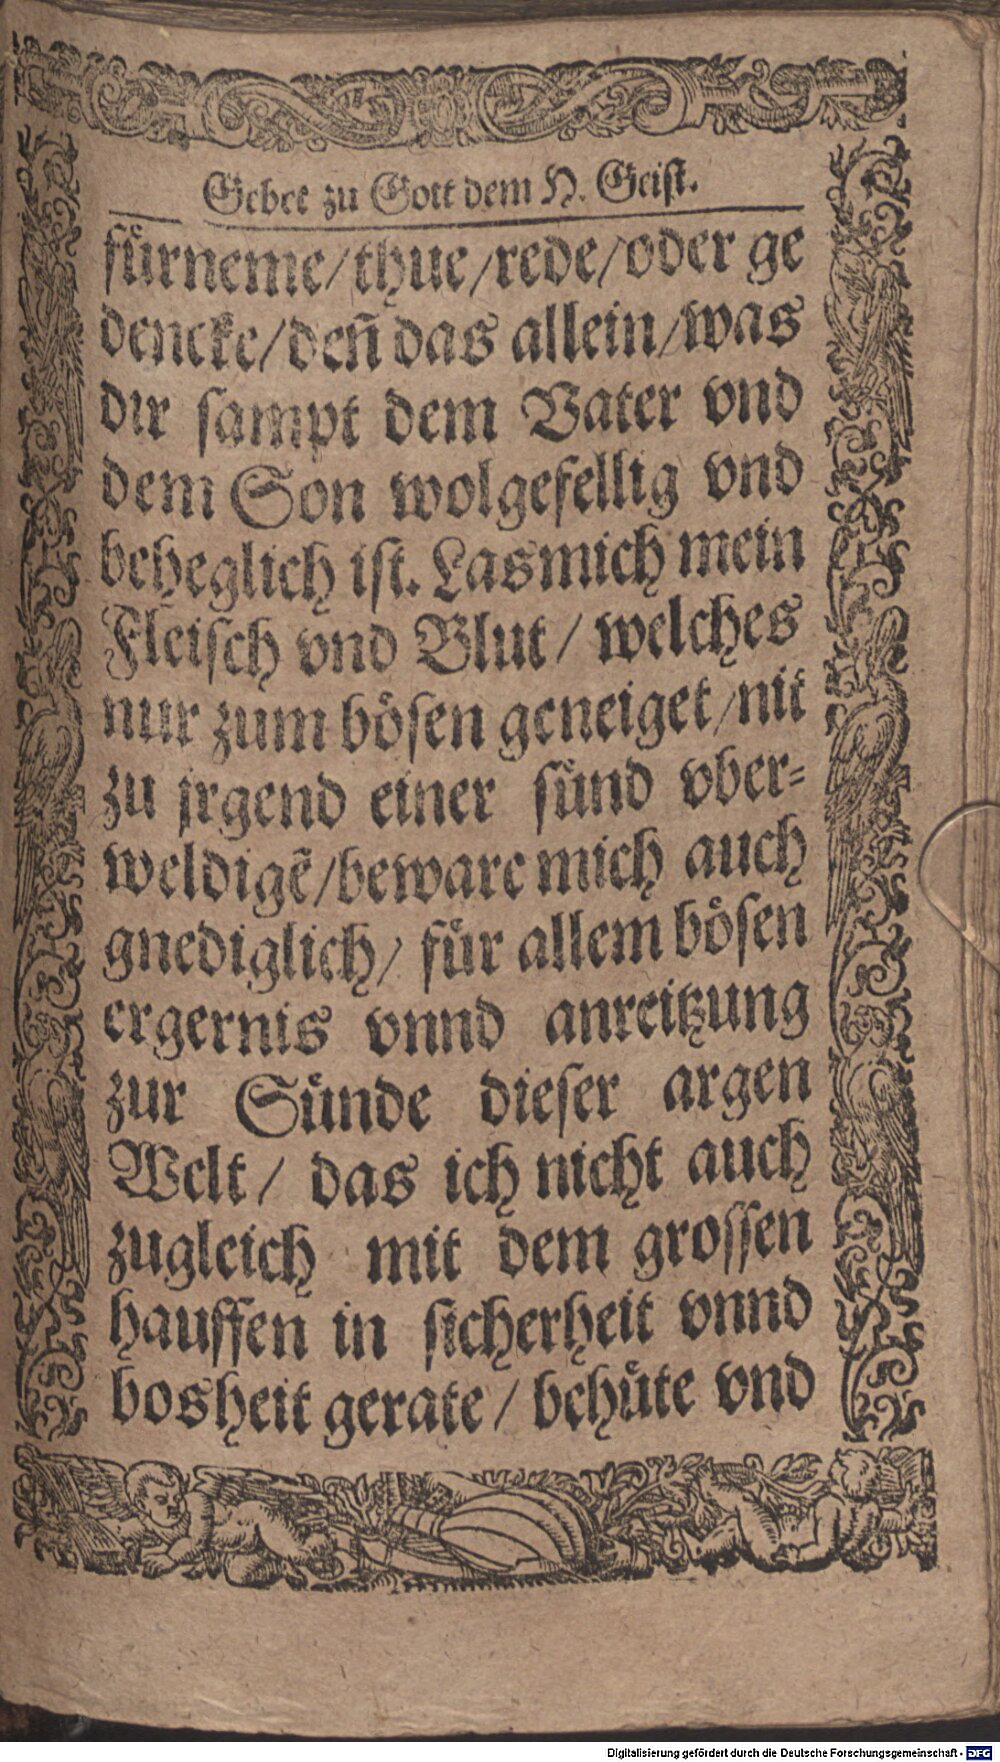 Gebet zu Gott dem H. Geist.
fürneme/thue/rede/oder ge
dencke/deñ das allein/was
dir sampt dem Vater vnd
dem Son wolgefellig vnd
beheglich ist. Las mich mein
Fleisch vnd Blut/ welches
nur zum bösen geneiget/nit
zu jrgend einer sünd vber-
weldigẽ/beware mich auch
gnediglich/ für allem bösen
ergernis vnnd anreitzung
zur Sünde dieser argen
Welt/ das ich nicht auch
zugleich mit dem grossen
hauffen in sicherheit vnnd
bosheit gerate/ behüte vnd
Digitalisierung gefördert durch die Deutsche Forschungsgemeinschaft - DFG